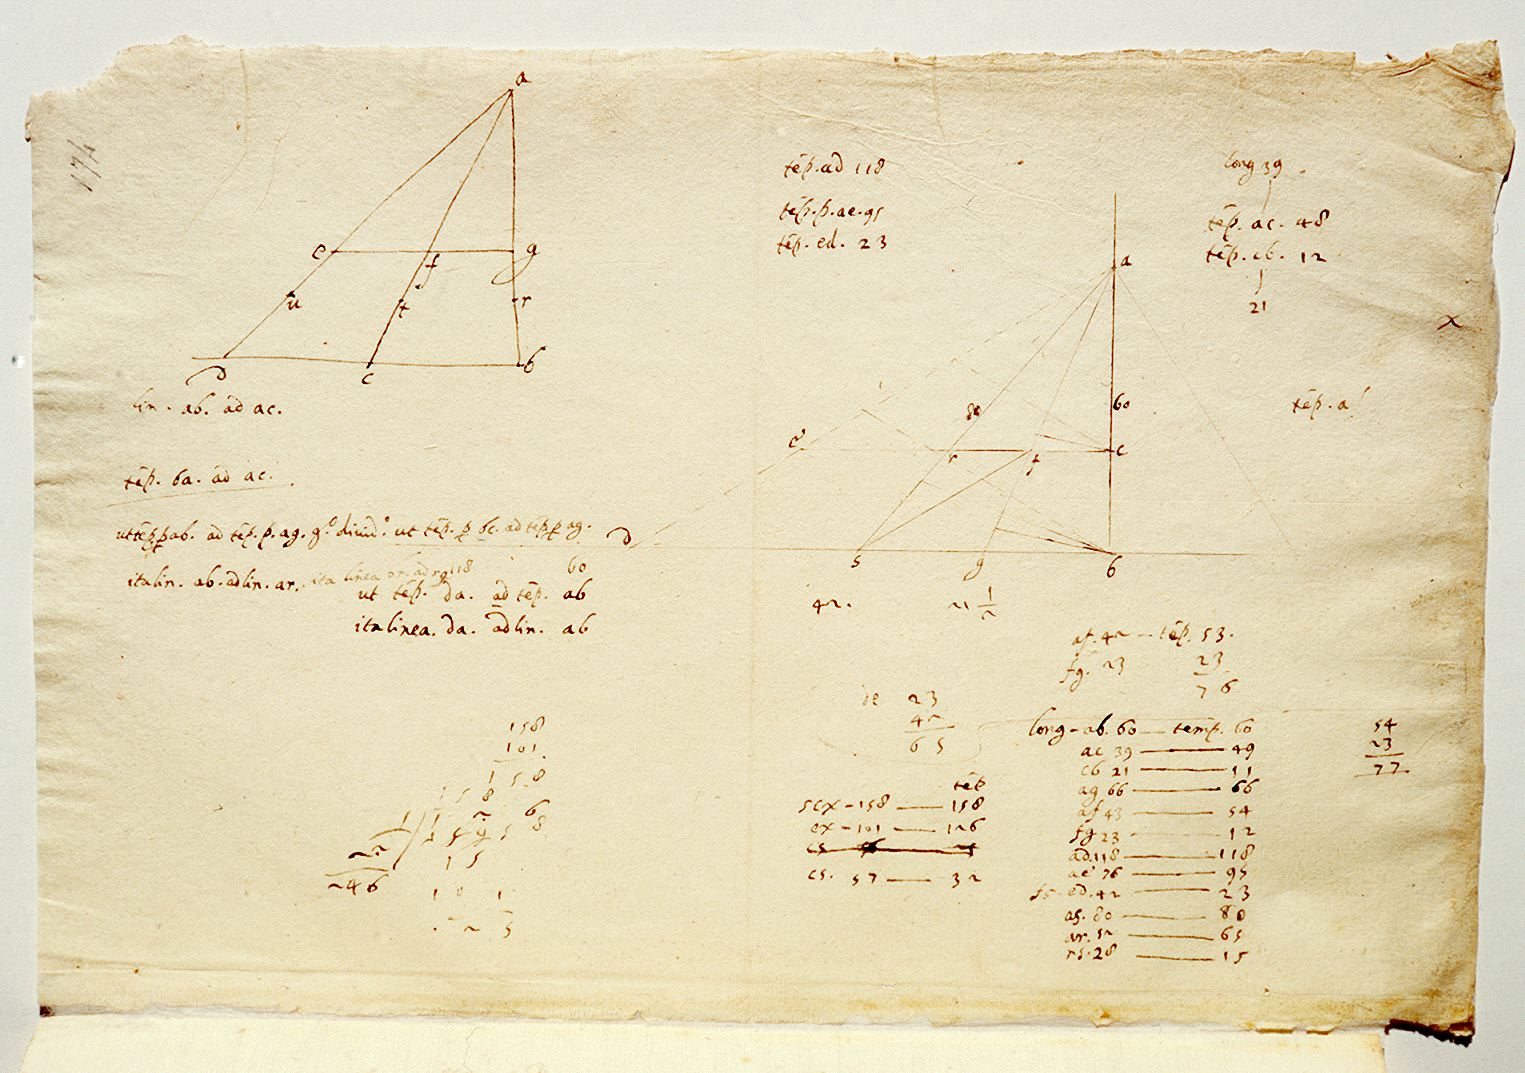 174
a
e
f
g
u
t
r
D
c
b
lin. ab. ad ac.
tēp. ba. ad ac.
ut tēp. p ab. ad tēp. p. ag. g.º diuid.º ut tēp. p bc. ad tēp. p ag.
ita lin. ab. ad lin. ar. ita linea br. ad rg
118 60
ut tēp. da. ad tēp. ab
ita linea. da. ad lin. ab
158
101
1 5 8
1 5 8
246
1 0 1
tēp. ad 118
tēp. p. ae. 95
tēp. ed. 23
long 39
tēp. ac. 48
tēp. cb. 12
21
x
tēp. a
a
60
80
e
r
f
c
D
s
g
b
42.
21 1/2
af. 42 — tēp. 53.
fg. 23 23
76
de 23
42
65
long - ab. 60 — temp. 60
ac 39 — 49
cb 21 — 11
ag 66 — 66
af 43 — 54
fg 23 — 12
ad. 118 — 118
ae 76 — 95
fs - ed. 42 — 23
as. 80 — 80
ar. 52 — 65
rs. 28 — 15
54
23
77
tēp
scx - 158 — 158
ex - 101 — 126
cs. 57 — 32